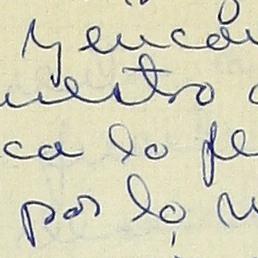 y encon
uestro
ca lo pe
por lo